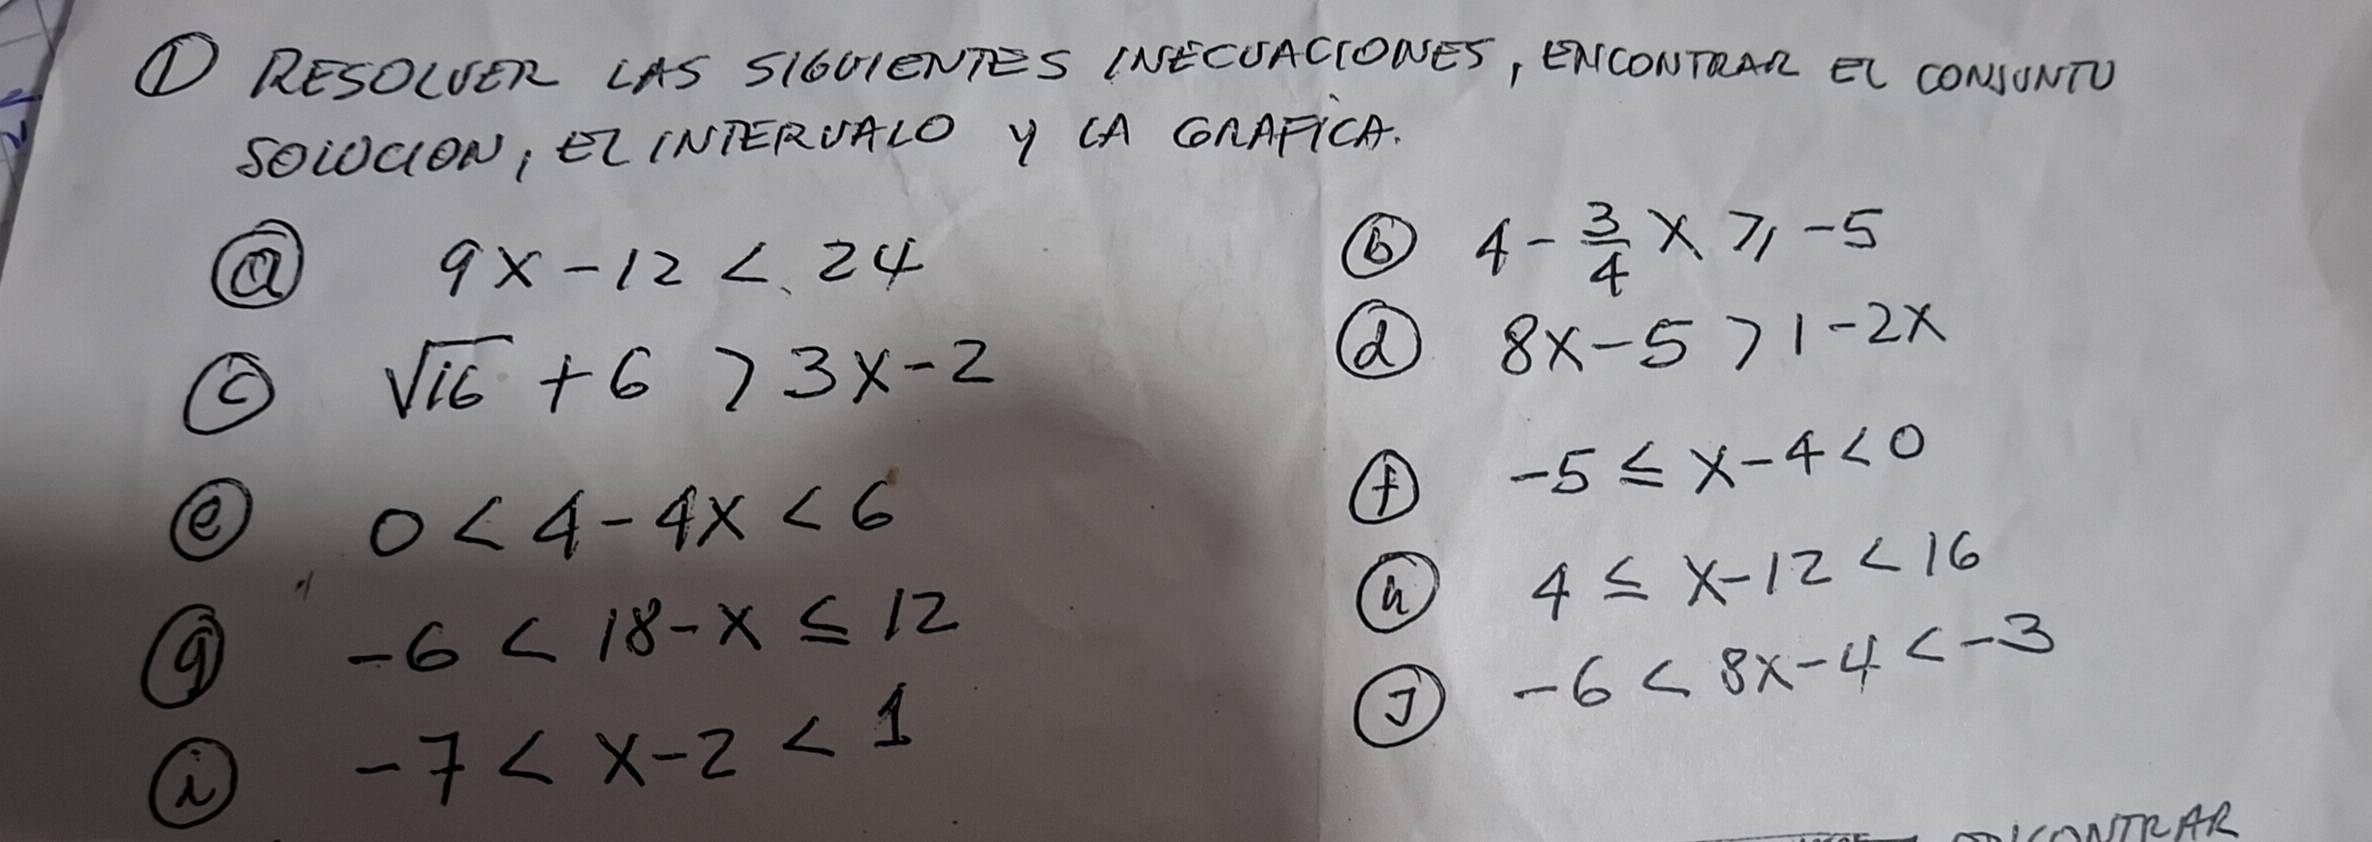 ① RESOLVER LAS SIGUIENTES INECUACIONES, ENCONTRAR EL CONJUNTO
SOLUCION, EL INTERVALO Y LA GRAFICA.
ⓐ 9x - 12 < 24
ⓑ 4 - 3/4 x ⩾ -5
ⓒ √16 + 6 > 3x - 2
ⓓ 8x - 5 > 1 - 2x
ⓔ 0 < 4 - 4x < 6
ⓕ -5 ≤ x - 4 < 0
ⓖ -6 < 18 - x ≤ 12
ⓗ 4 ≤ x - 12 < 16
ⓘ -7 < x - 2 < 1
ⓙ -6 < 8x - 4 < -3